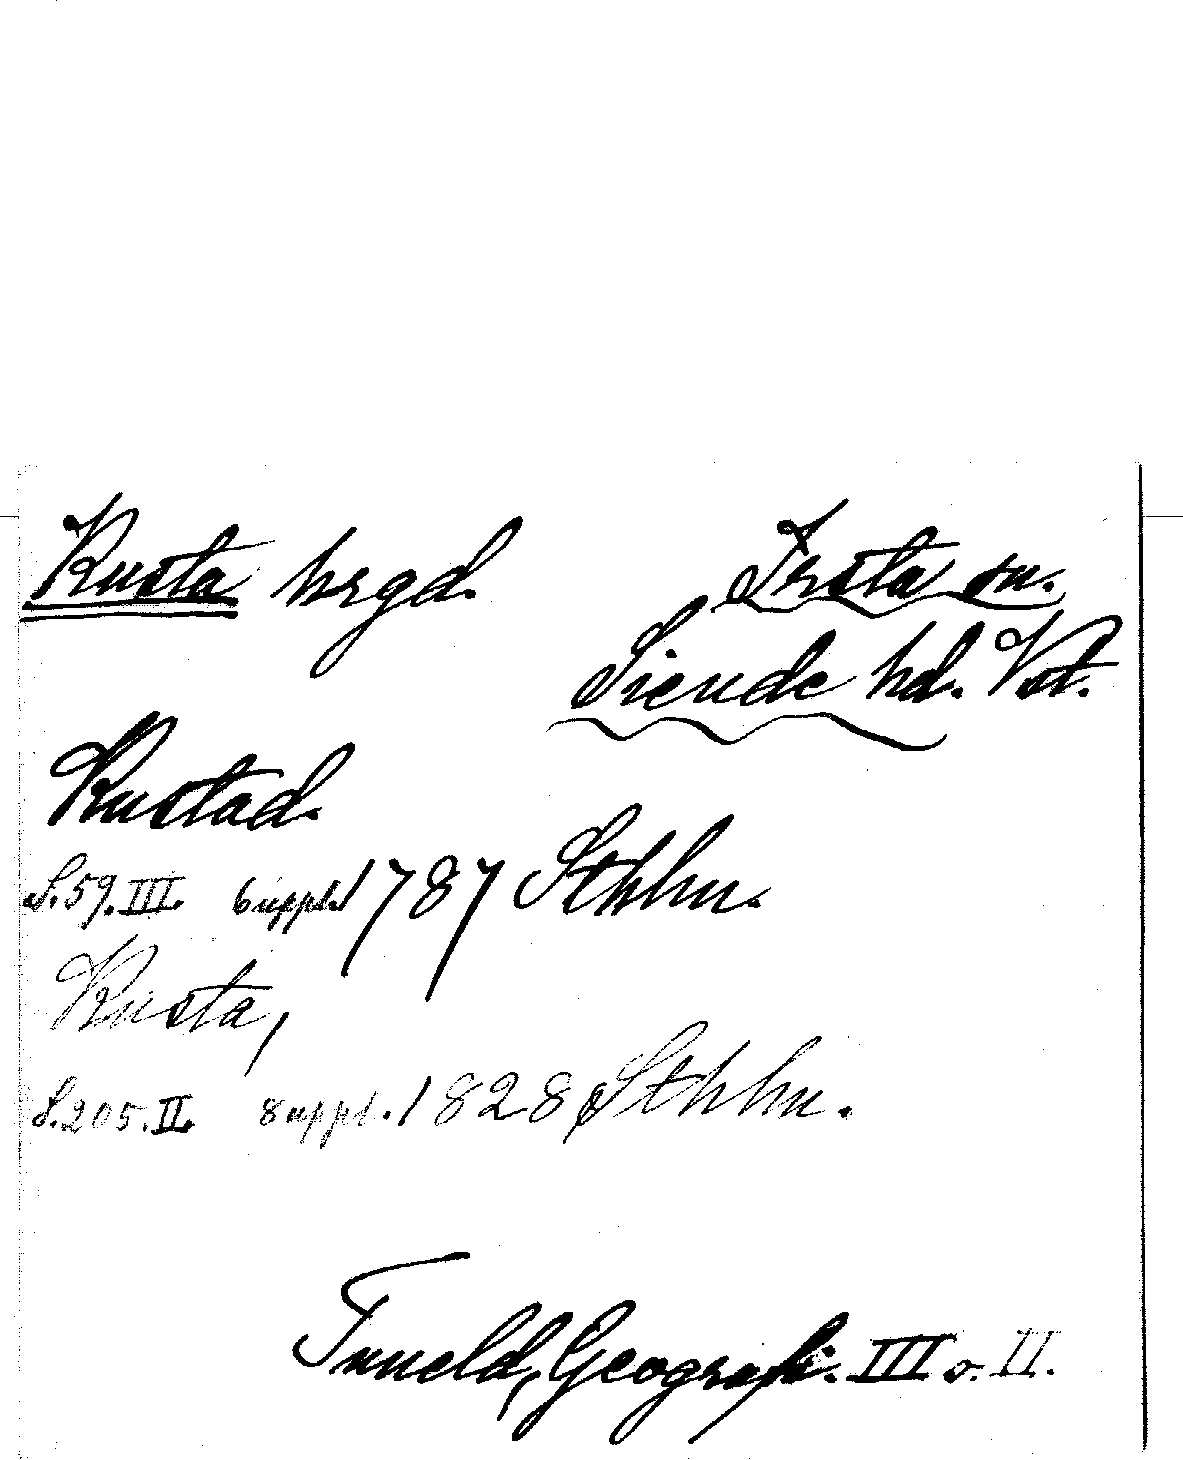 Kusta hrgd.
Irsta sn.
Siende hd. Vstm.
Kustad.
S. 59. III. 6 uppl. 1787 Sthlm.
Kusta,
S. 205. II. 8 uppl. 1828 Sthlm.
Tuneld, Geografi. III o. II.